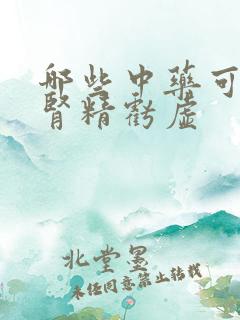 哪些中药可
肾精亏虚
北堂墨
未经同意禁止转载